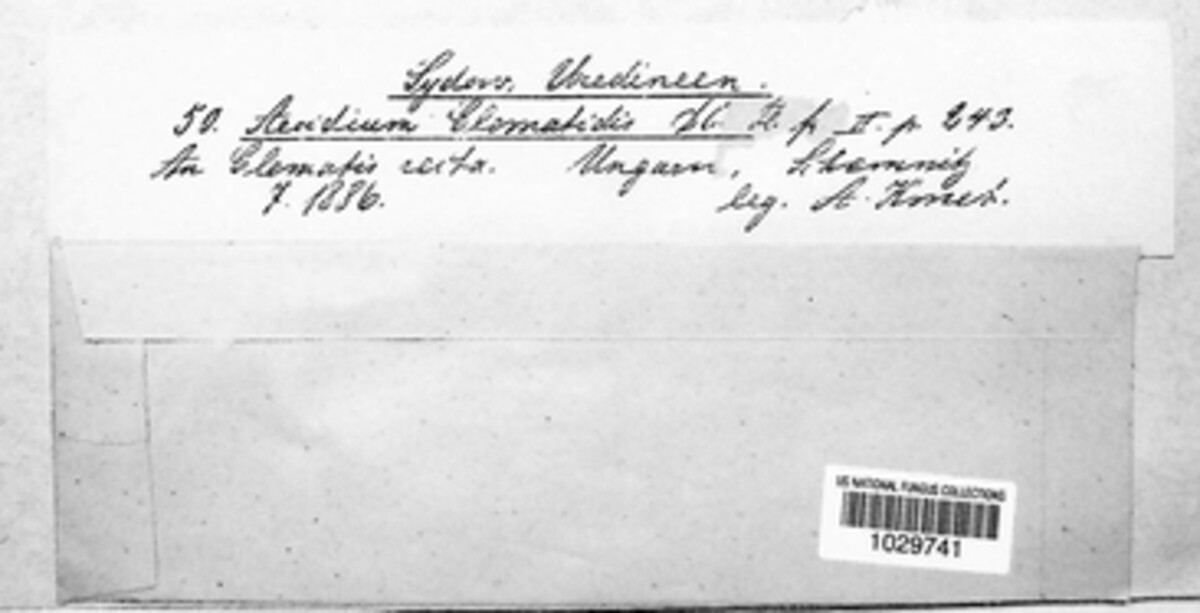 Sydow, Uredineen.
50. Aecidium Clematidis DC. Fl. fr. II. p. 243.
An Clematis recta. Ungarn, Schemnitz
7. 1886. leg. A. Kmet.
US NATIONAL FUNGUS COLLECTIONS
1029741